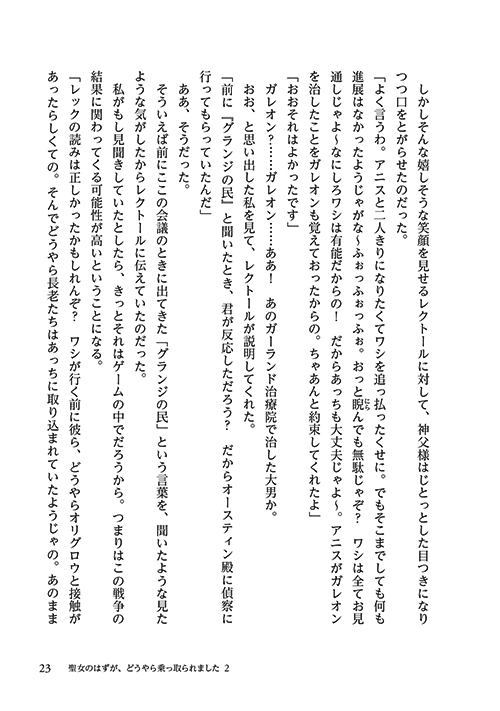 しかしそんな嬉しそうな笑顔を見せるレクトールに対して、神父様はじとっとした目つきになり
つつ口をとがらせたのだった。
「よく言うわ。アニスと二人きりになりたくてワシを追っ払ったくせに。でもそこまでしても何も
進展はなかったようじゃがな～ふぉっふぉっふぉ。おっと睨んでも無駄じゃぞ？　ワシは全てお見
通しじゃよ～なにしろワシは有能だからの！　だからあっちも大丈夫じゃよ～。アニスがガレオン
を治したことをガレオンも覚えておったからの。ちゃあんと約束してくれたよ」
「おおそれはよかったです」
　ガレオン？……ガレオン……ああ！　あのガーランド治療院で治した大男か。
　おお、と思い出した私を見て、レクトールが説明してくれた。
「前に『グランジの民』と聞いたとき、君が反応しただろう？　だからオースティン殿に偵察に
行ってもらっていたんだ」
　ああ、そうだった。
　そういえば前にここの会議のときに出てきた「グランジの民」という言葉を、聞いたような見た
ような気がしたからレクトールに伝えていたのだった。
　私がもし見聞きしていたとしたら、きっとそれはゲームの中でだろうから。つまりはこの戦争の
結果に関わってくる可能性が高いということになる。
「レックの読みは正しかったかもしれんぞ？　ワシが行く前に彼ら、どうやらオリグロウと接触が
あったらしくての。そんでどうやら長老たちはあっちに取り込まれていたようじゃの。あのまま
23　聖女のはずが、どうやら乗っ取られました 2